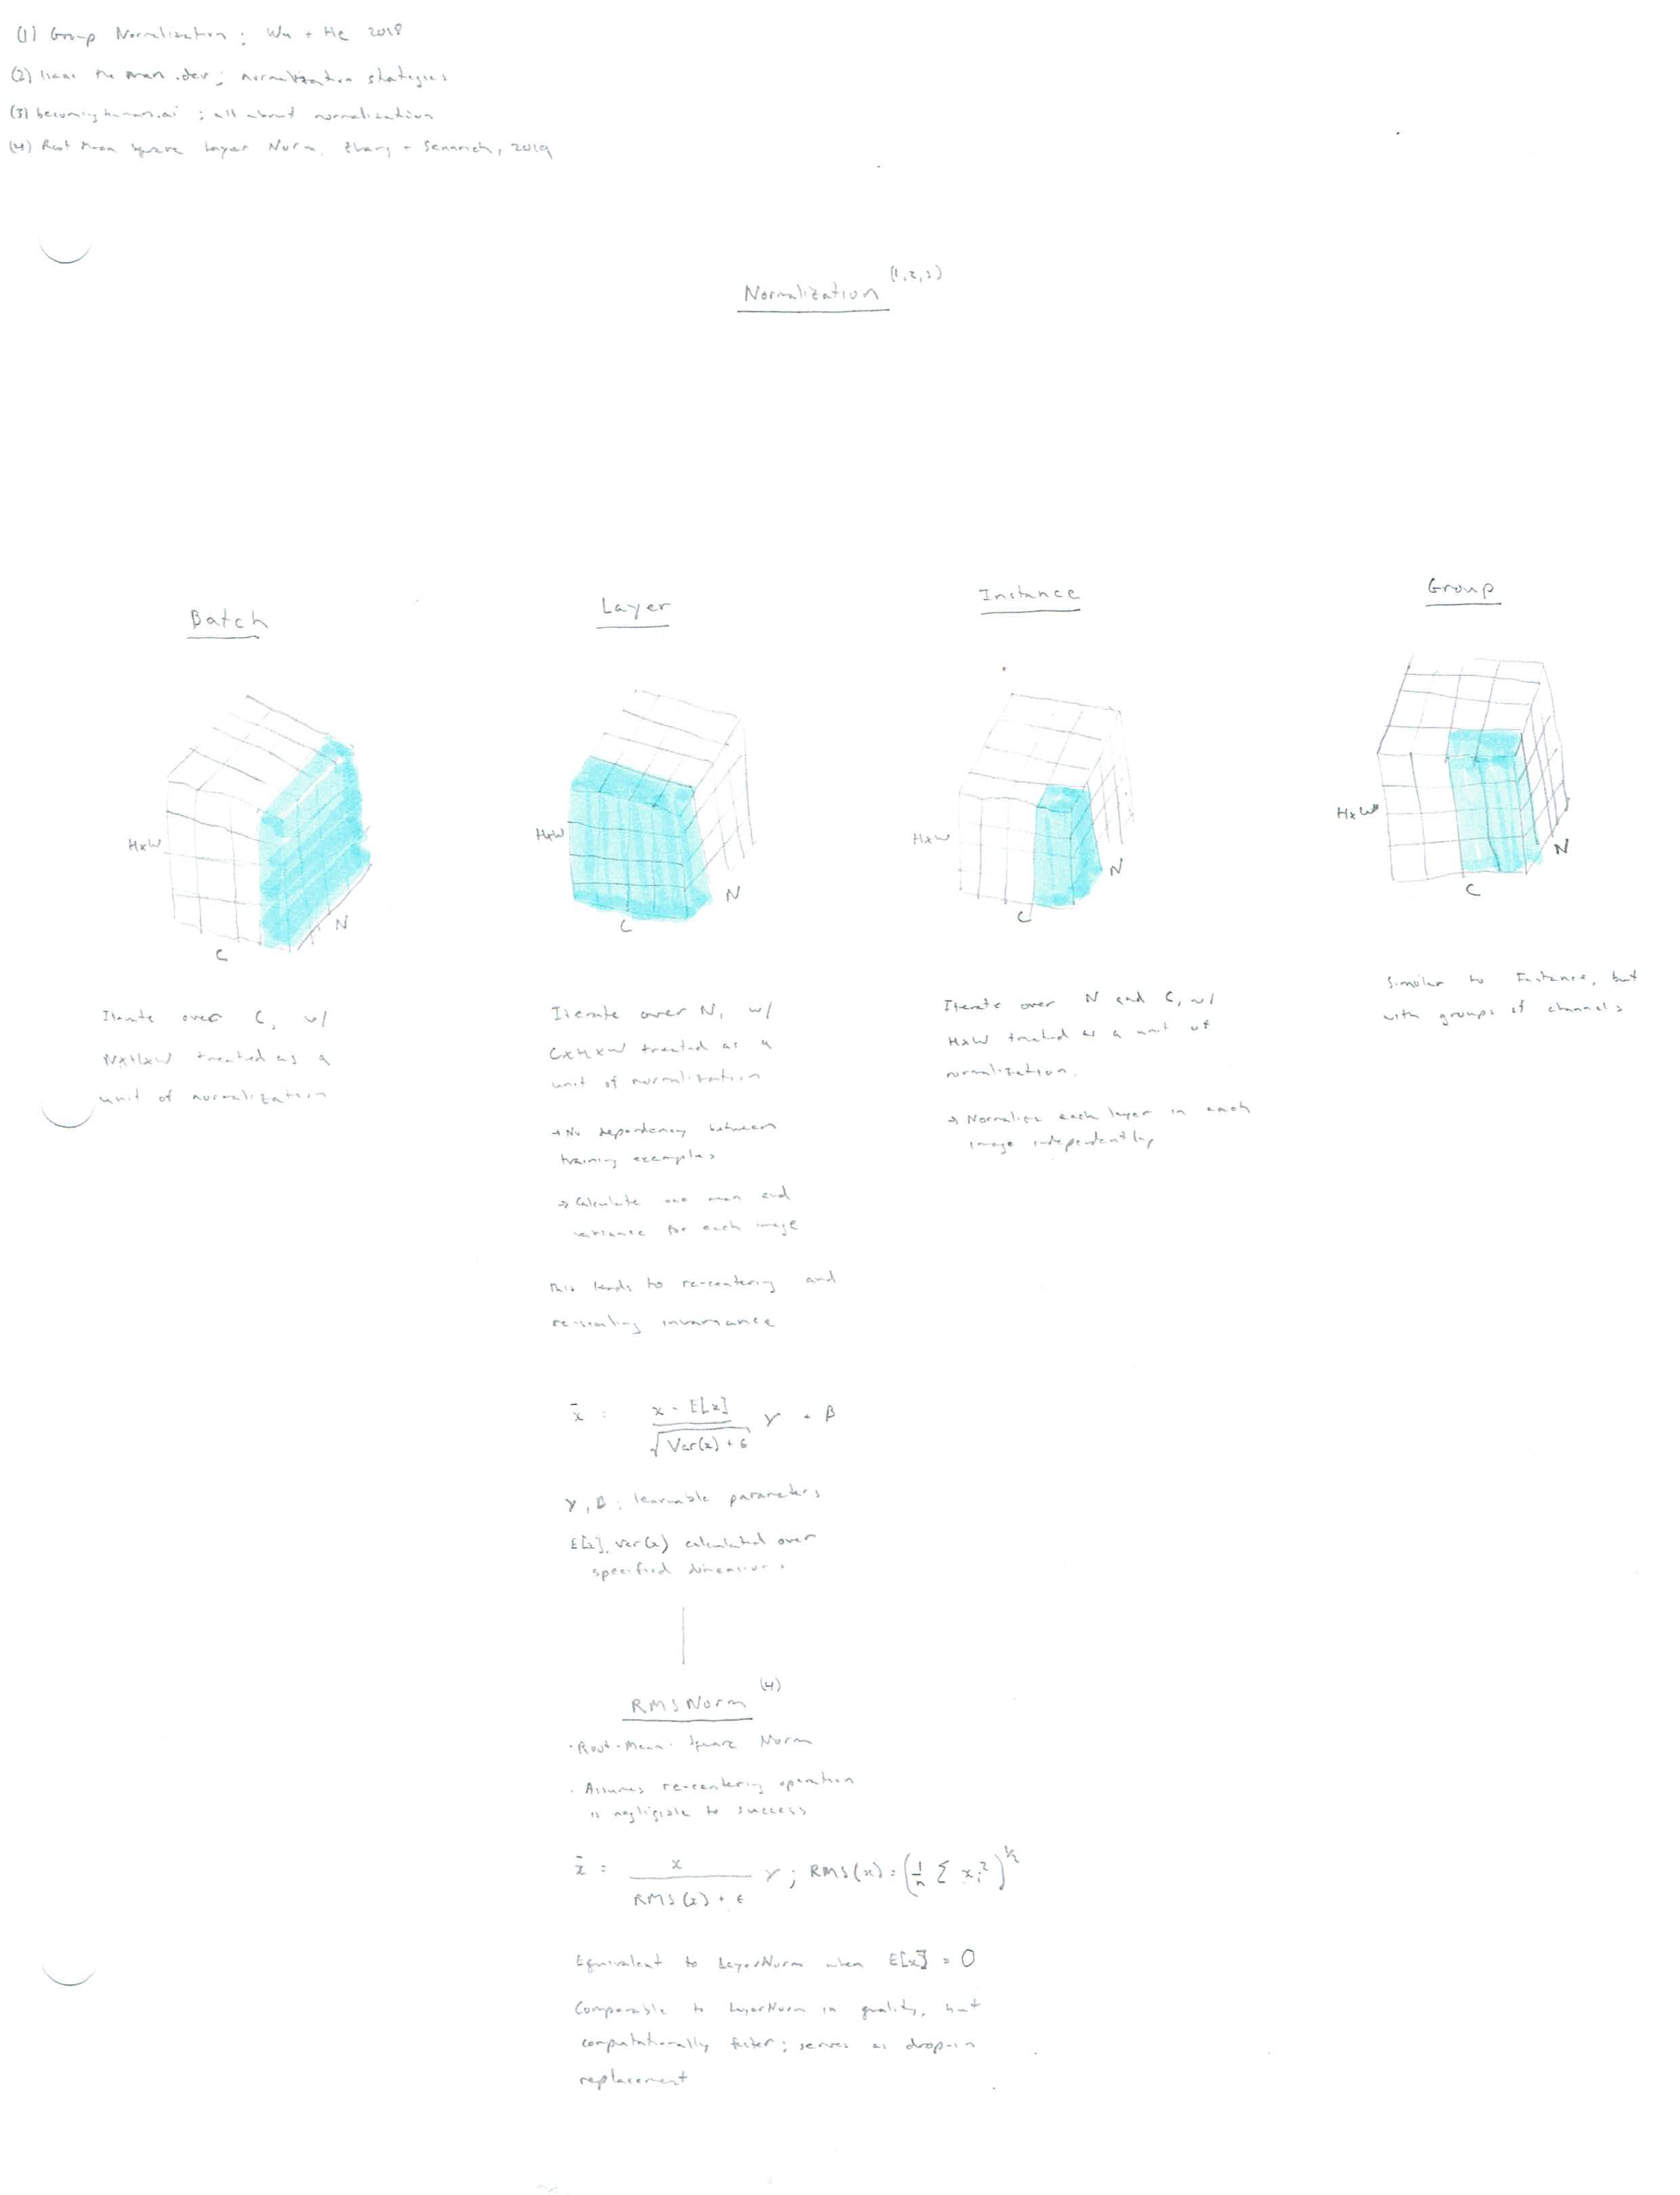 (1) Group Normalization ; Wu + He 2018
(2) isaac the man .dev ; normalization strategies
(3) becominghuman.ai ; all about normalization
(4) Root Mean Square Layer Norm. Zhang + Sennrich, 2019
Normalization (1,2,3)
Batch
HxW
N
C
Iterate over C, w/
NxHxW treated as a
unit of normalization
Layer
HxW
N
C
Iterate over N, w/
CxHxW treated as a
unit of normalization
→ No dependency between
training examples
→ Calculate one mean and
variance for each image
This leads to re-centering and
re-scaling invariance
x̄ = x - E[x] / √Var(x) + ε γ + β
γ, β : learnable parameters
E[x], Var(x) calculated over
specified dimensions
RMSNorm (4)
· Root-Mean-Square Norm
· Assumes re-centering operation
is negligible to success
x̄ = x / RMS(x) + ε γ ; RMS(x) = (1/n Σ xᵢ²)^1/2
Equivalent to LayerNorm when E[x] = 0
Comparable to LayerNorm in quality, but
computationally faster ; serves as drop-in
replacement
Instance
HxW
N
C
Iterate over N and C, w/
HxW treated as a unit of
normalization.
→ Normalize each layer in each
image independently
Group
HxW
N
C
Similar to Instance, but
with groups of channels